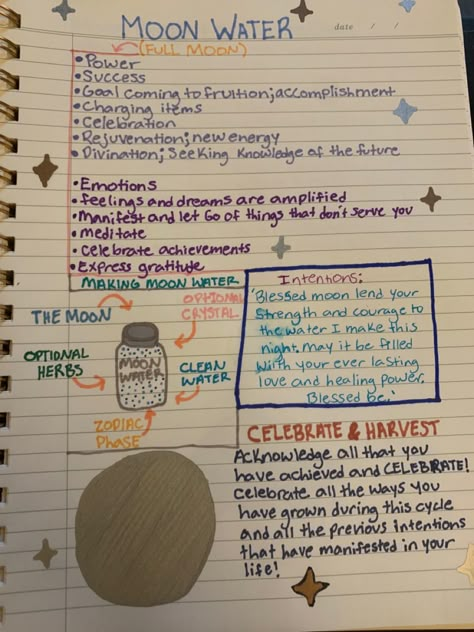 MOON WATER
date / /
(FULL MOON)
• Power
• Success
• Goal coming to fruition; accomplishment
• Charging items
• Celebration
• Rejuvenation; new energy
• Divination; Seeking Knowledge of the future
• Emotions
• feelings and dreams are amplified
• Manifest and let Go of things that don't serve you
• meditate
• celebrate achievements
• Express gratitude
MAKING MOON WATER
OPTIONAL
CRYSTAL
THE MOON
OPTIONAL
HERBS
MOON
WATER
CLEAN
WATER
ZODIAC
PHASE
Intentions:
'Blessed moon lend your
Strength and courage to
the water I make this
night. may it be filled
with your ever lasting
love and healing power.
Blessed be.'
CELEBRATE & HARVEST
Acknowledge all that you
have achieved and CELEBRATE!
Celebrate all the ways you
have grown during this cycle
and all the previous intentions
that have manifested in your
life!